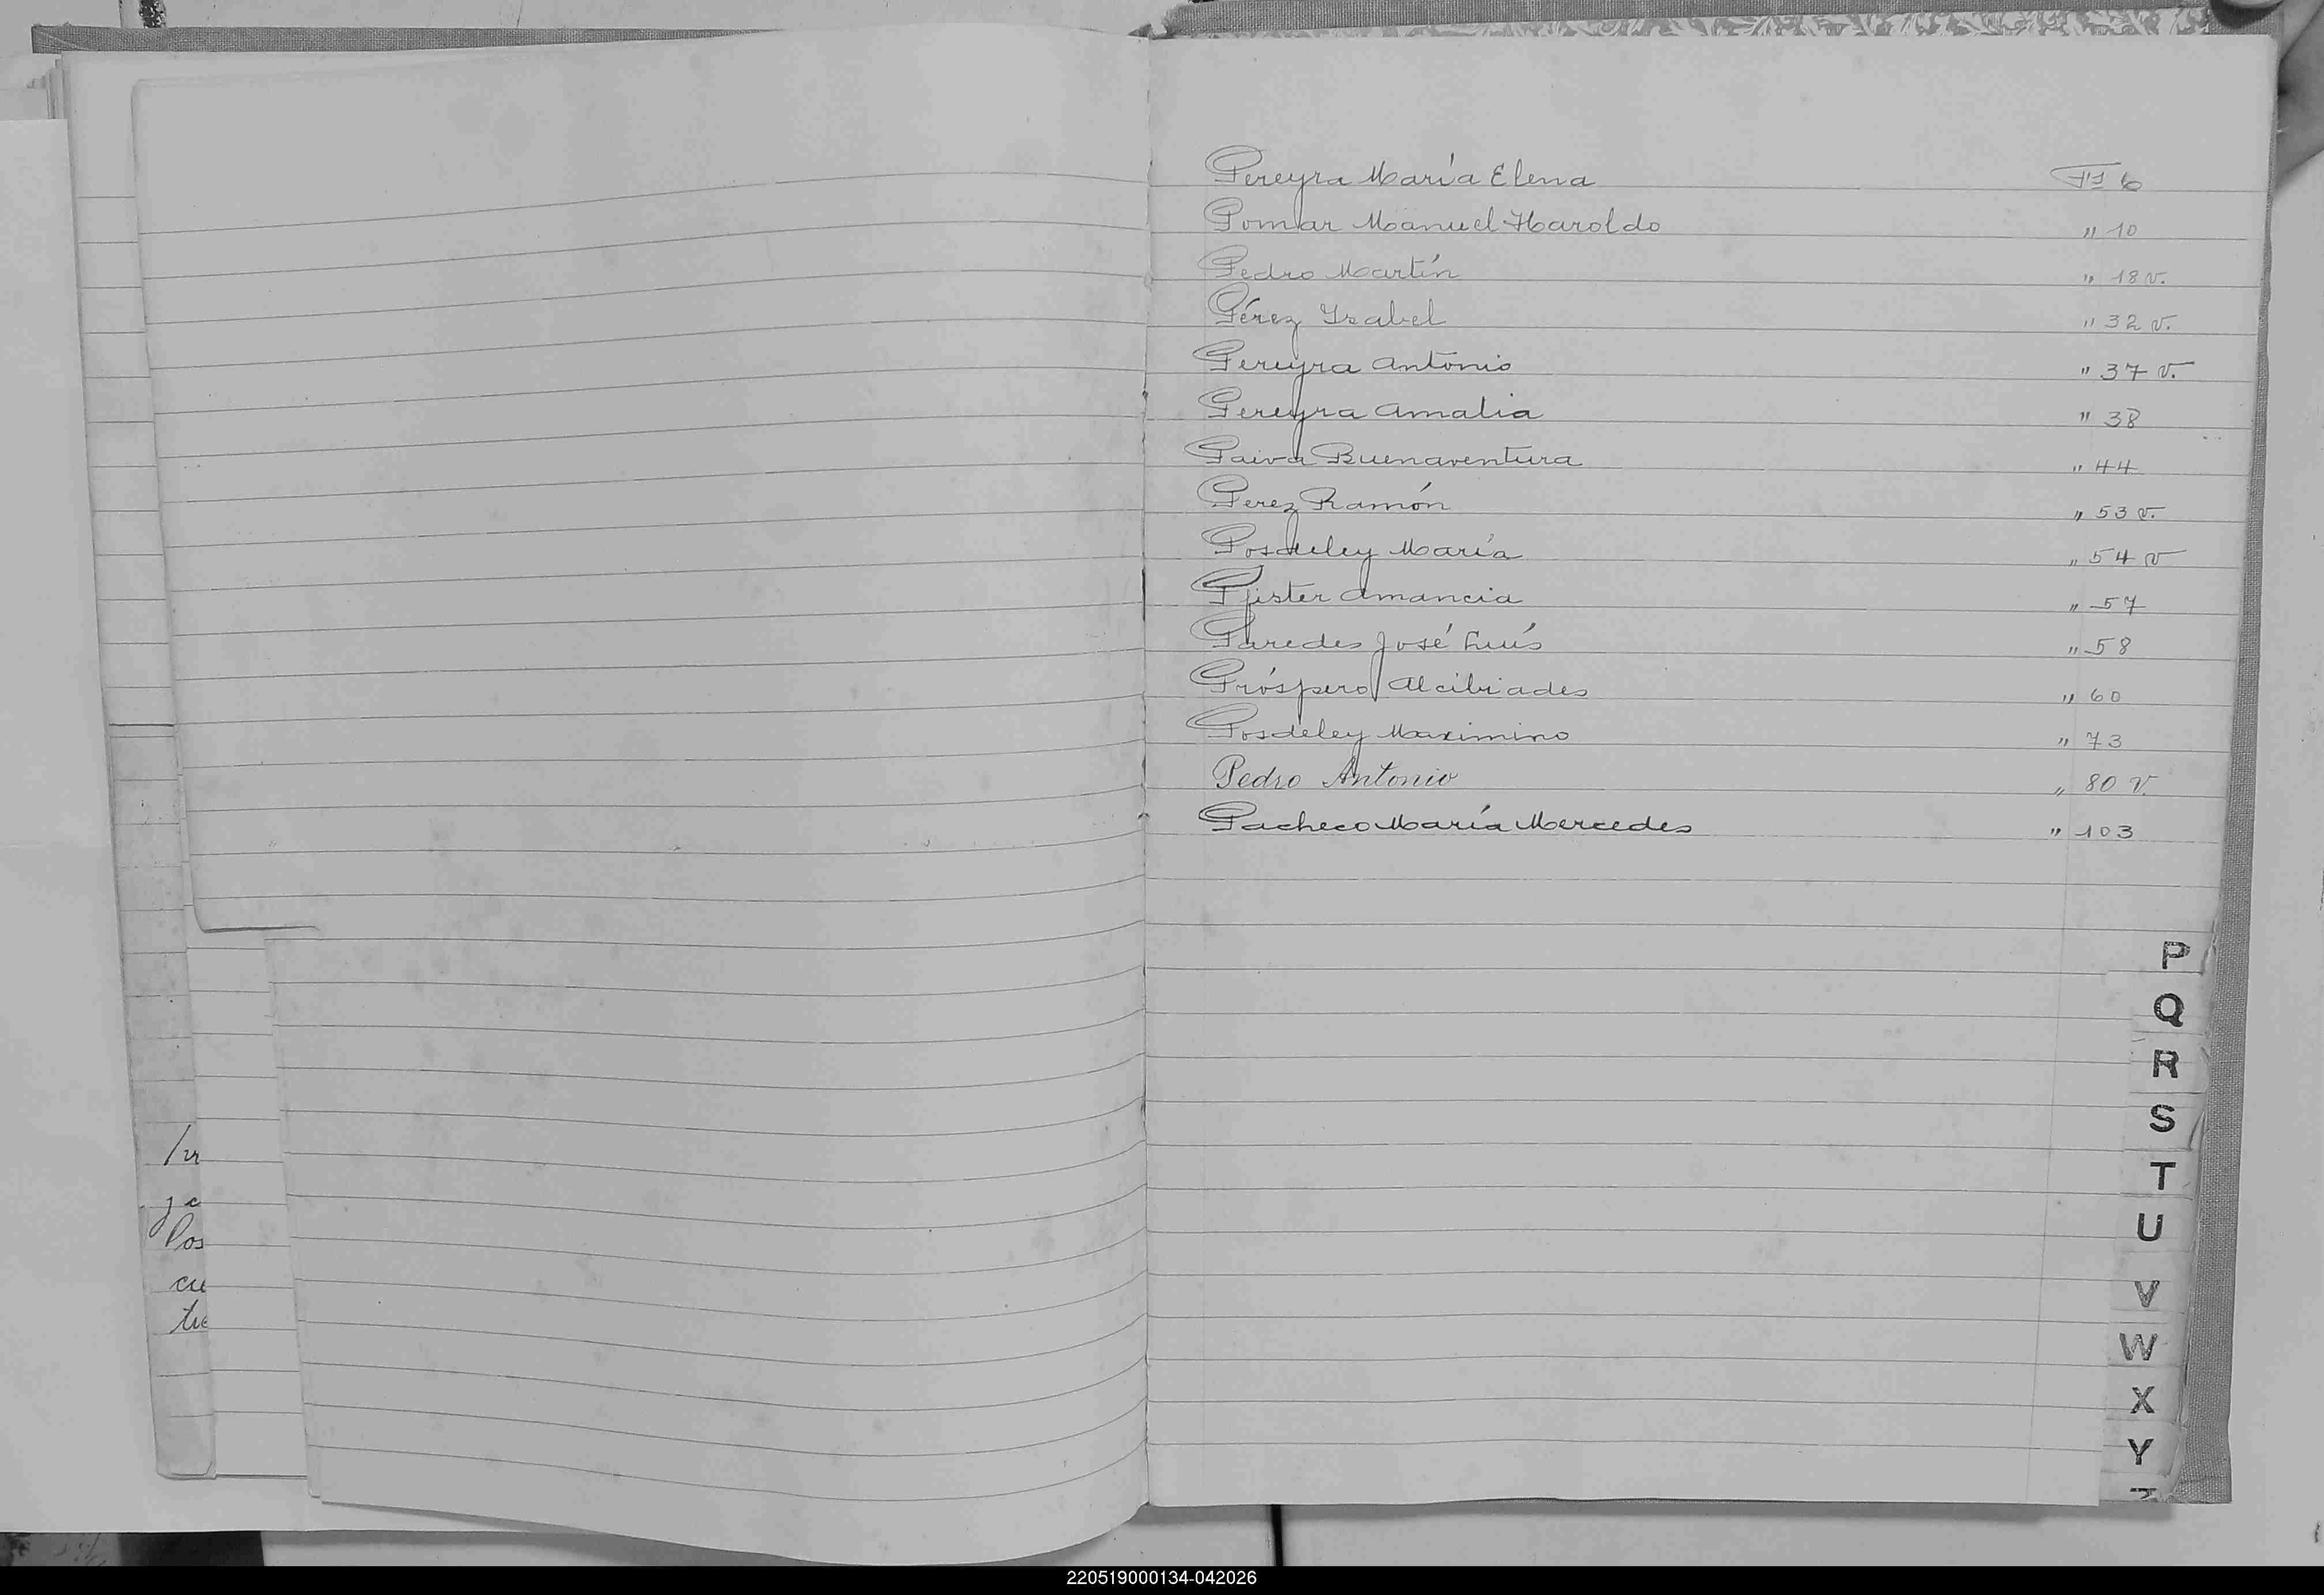 Pereyra María Elena Fs 6
Pomar Manuel Haroldo " 10
Pedro Martín " 18 v.
Pérez Ysabel " 32 v.
Pereyra Antonio " 37 v.
Pereyra Amalia " 38
Paiva Buenaventura " 44
Perez Ramón " 53 v.
Posdeley María " 54 v
Pfister Amancia " 57
Paredes José Luís " 58
Próspero Alcibiades " 60
Posdeley Maximino " 73
Pedro Antonio " 80 v.
Pacheco María Mercedes " 103
P
Q
R
S
T
U
V
W
X
Y
los
cu
tre
220519000134-042026